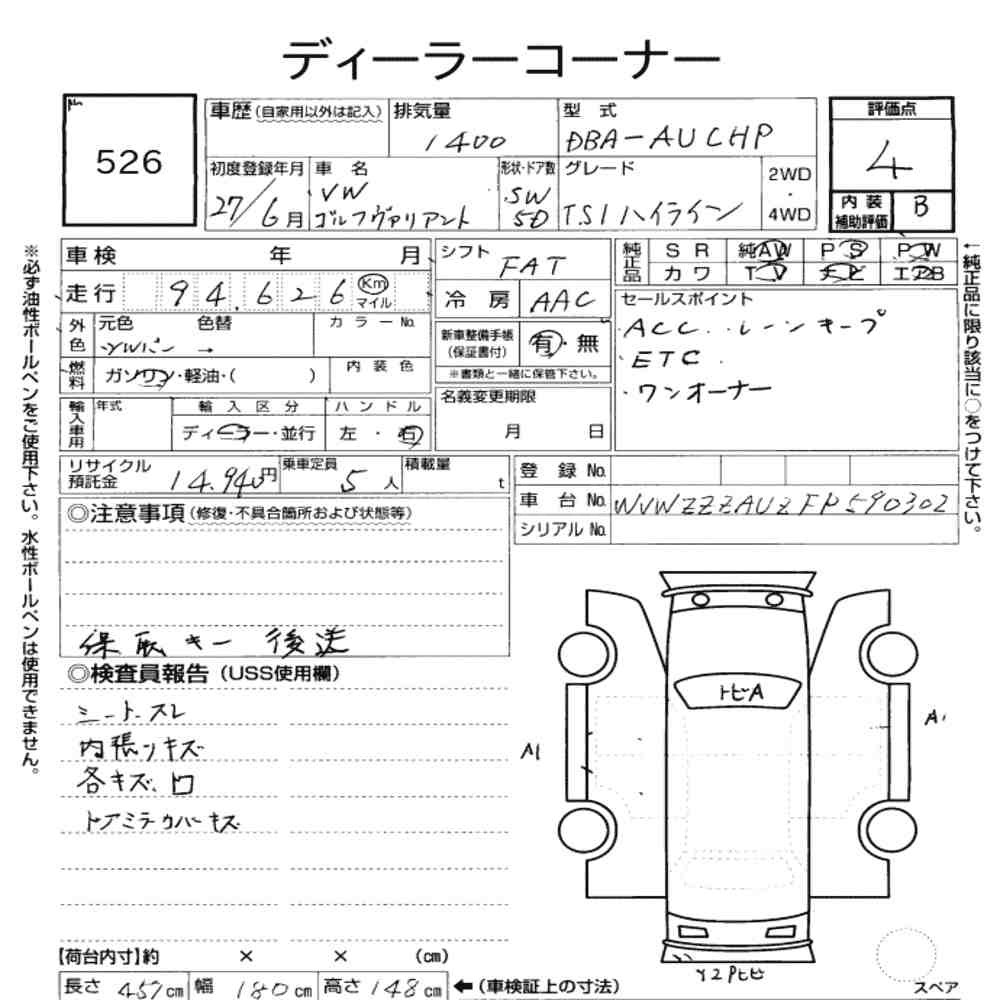 ディーラーコーナー
526
車歴(自家用以外は記入)
排気量
1400
型 式
DBA-AUCHP
評価点
4
内装補助評価
B
初度登録年月
27/6月
車 名
VW
ゴルフヴァリアント
形状・ドア数
SW
5D
グレード
TSIハイライン
2WD
・
4WD
車検 年 月
走行 94,626 Km マイル
外色 元色 色替 カラーNo.
燃料 ガソリン・軽油・( )
内装色
輸入車用 年式 輸入区分 ハンドル
ディーラー・並行 左・右
シフト
FAT
冷房 AAC
新車整備手帳
(保証書付)
有・無
※書類と一緒に保管下さい。
名義変更期限
月 日
純正品 SR 純AW PS PW
カワ TV ナビ エアB
セールスポイント
・ACC・レーンキープ
・ETC
・ワンオーナー
←純正品に限り該当に○をつけて下さい。
※必ず油性ボールペンをご使用下さい。水性ボールペンは使用できません。
リサイクル預託金 14,940円
乗車定員 5人
積載量 t
登録No.
車台No. WVWZZZAUZFP590302
シリアルNo.
◎注意事項(修復・不具合箇所および状態等)
保 取 キー 後送
◎検査員報告(USS使用欄)
シートスレ
内張リキズ
各キズ、凹
ドアミラーカバーキズ
トビA
A1
A1
Y2Pヒビ
スペア
【荷台内寸】約 × × (cm)
長さ 457cm 幅 180cm 高さ 148cm ←(車検証上の寸法)